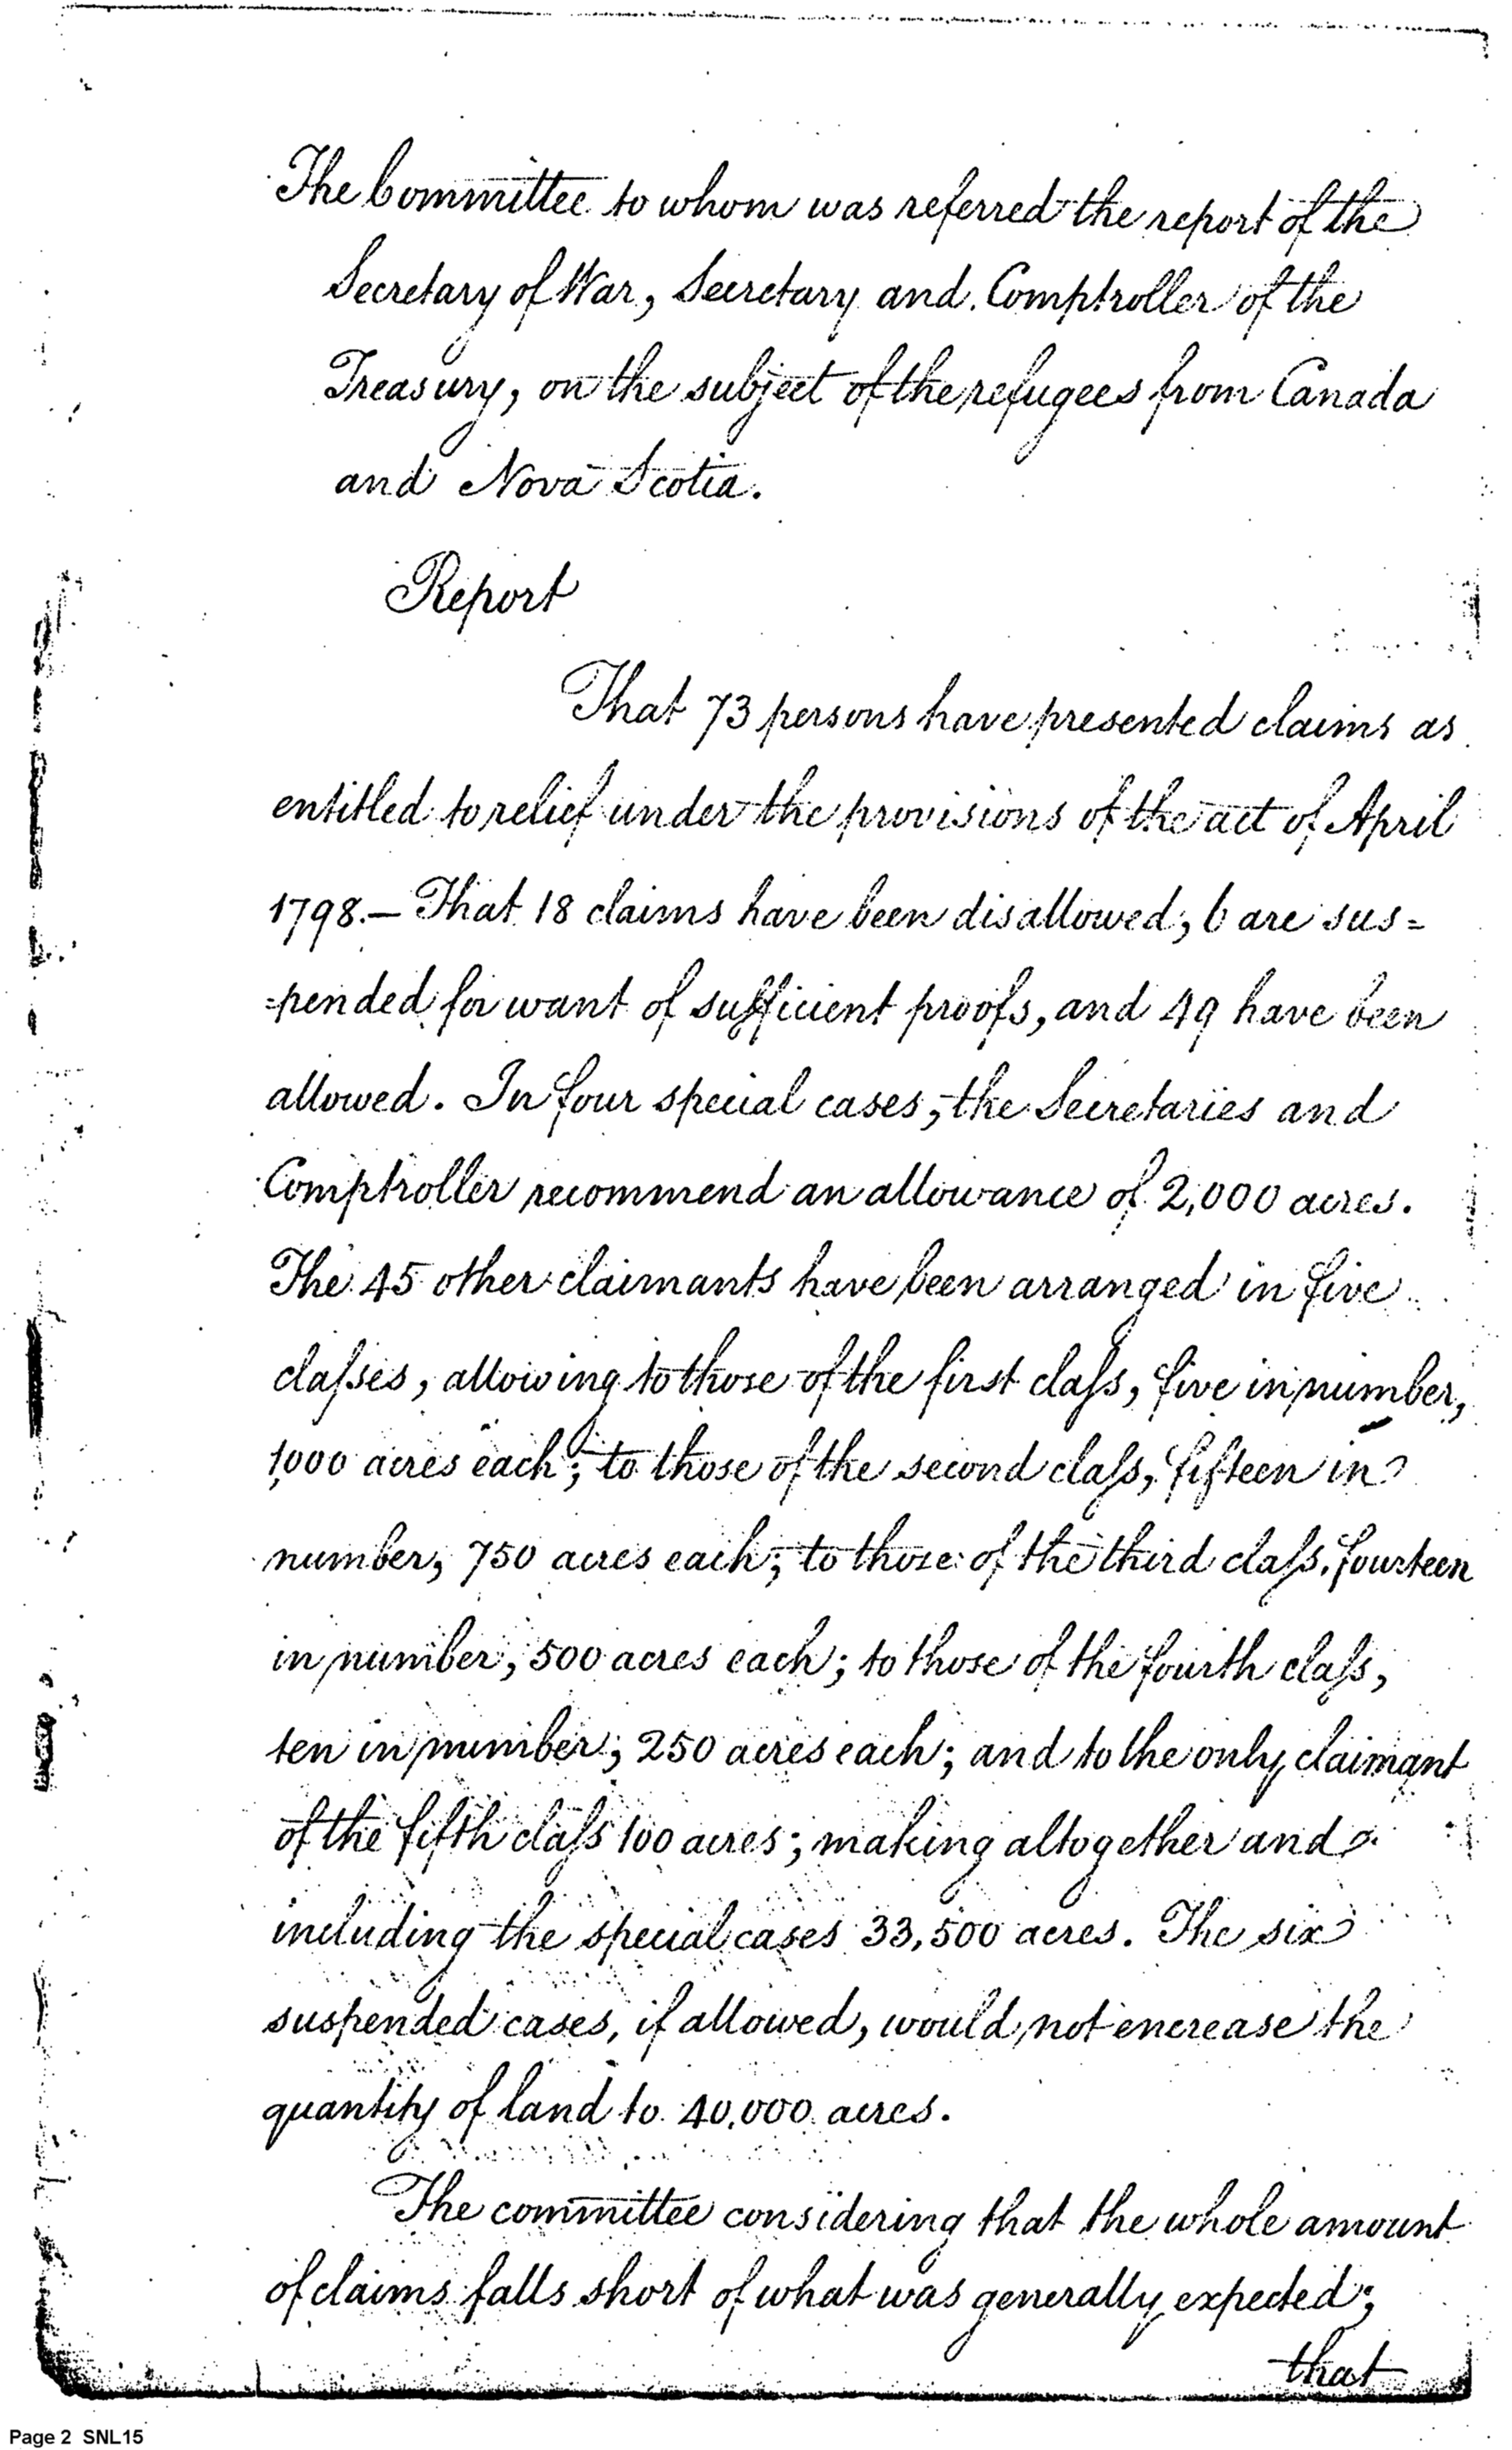 The Committee to whom was referred the report of the
Secretary of War, Secretary and Comptroller of the
Treasury, on the subject of the refugees from Canada
and Nova Scotia.
Report
That 73 persons have presented claims as
entitled to relief under the provisions of the act of April
1798.— That 18 claims have been disallowed, 6 are sus=
=pended for want of sufficient proofs, and 49 have been
allowed. In four special cases, the Secretaries and
Comptroller recommend an allowance of 2,000 acres.
The 45 other claimants have been arranged in five
claſses, allowing to those of the first claſs, five in number,
1,000 acres each; to those of the second claſs, fifteen in
number, 750 acres each; to those of the third claſs, fourteen
in number, 500 acres each; to those of the fourth claſs,
ten in number; 250 acres each; and to the only claimant
of the fifth claſs 100 acres; making altogether and
including the special cases 33,500 acres. The six
suspended cases, if allowed, would not encrease the
quantity of land to 40,000 acres.
The committee considering that the whole amount
of claims falls short of what was generally expected;
that
Page 2 SNL15